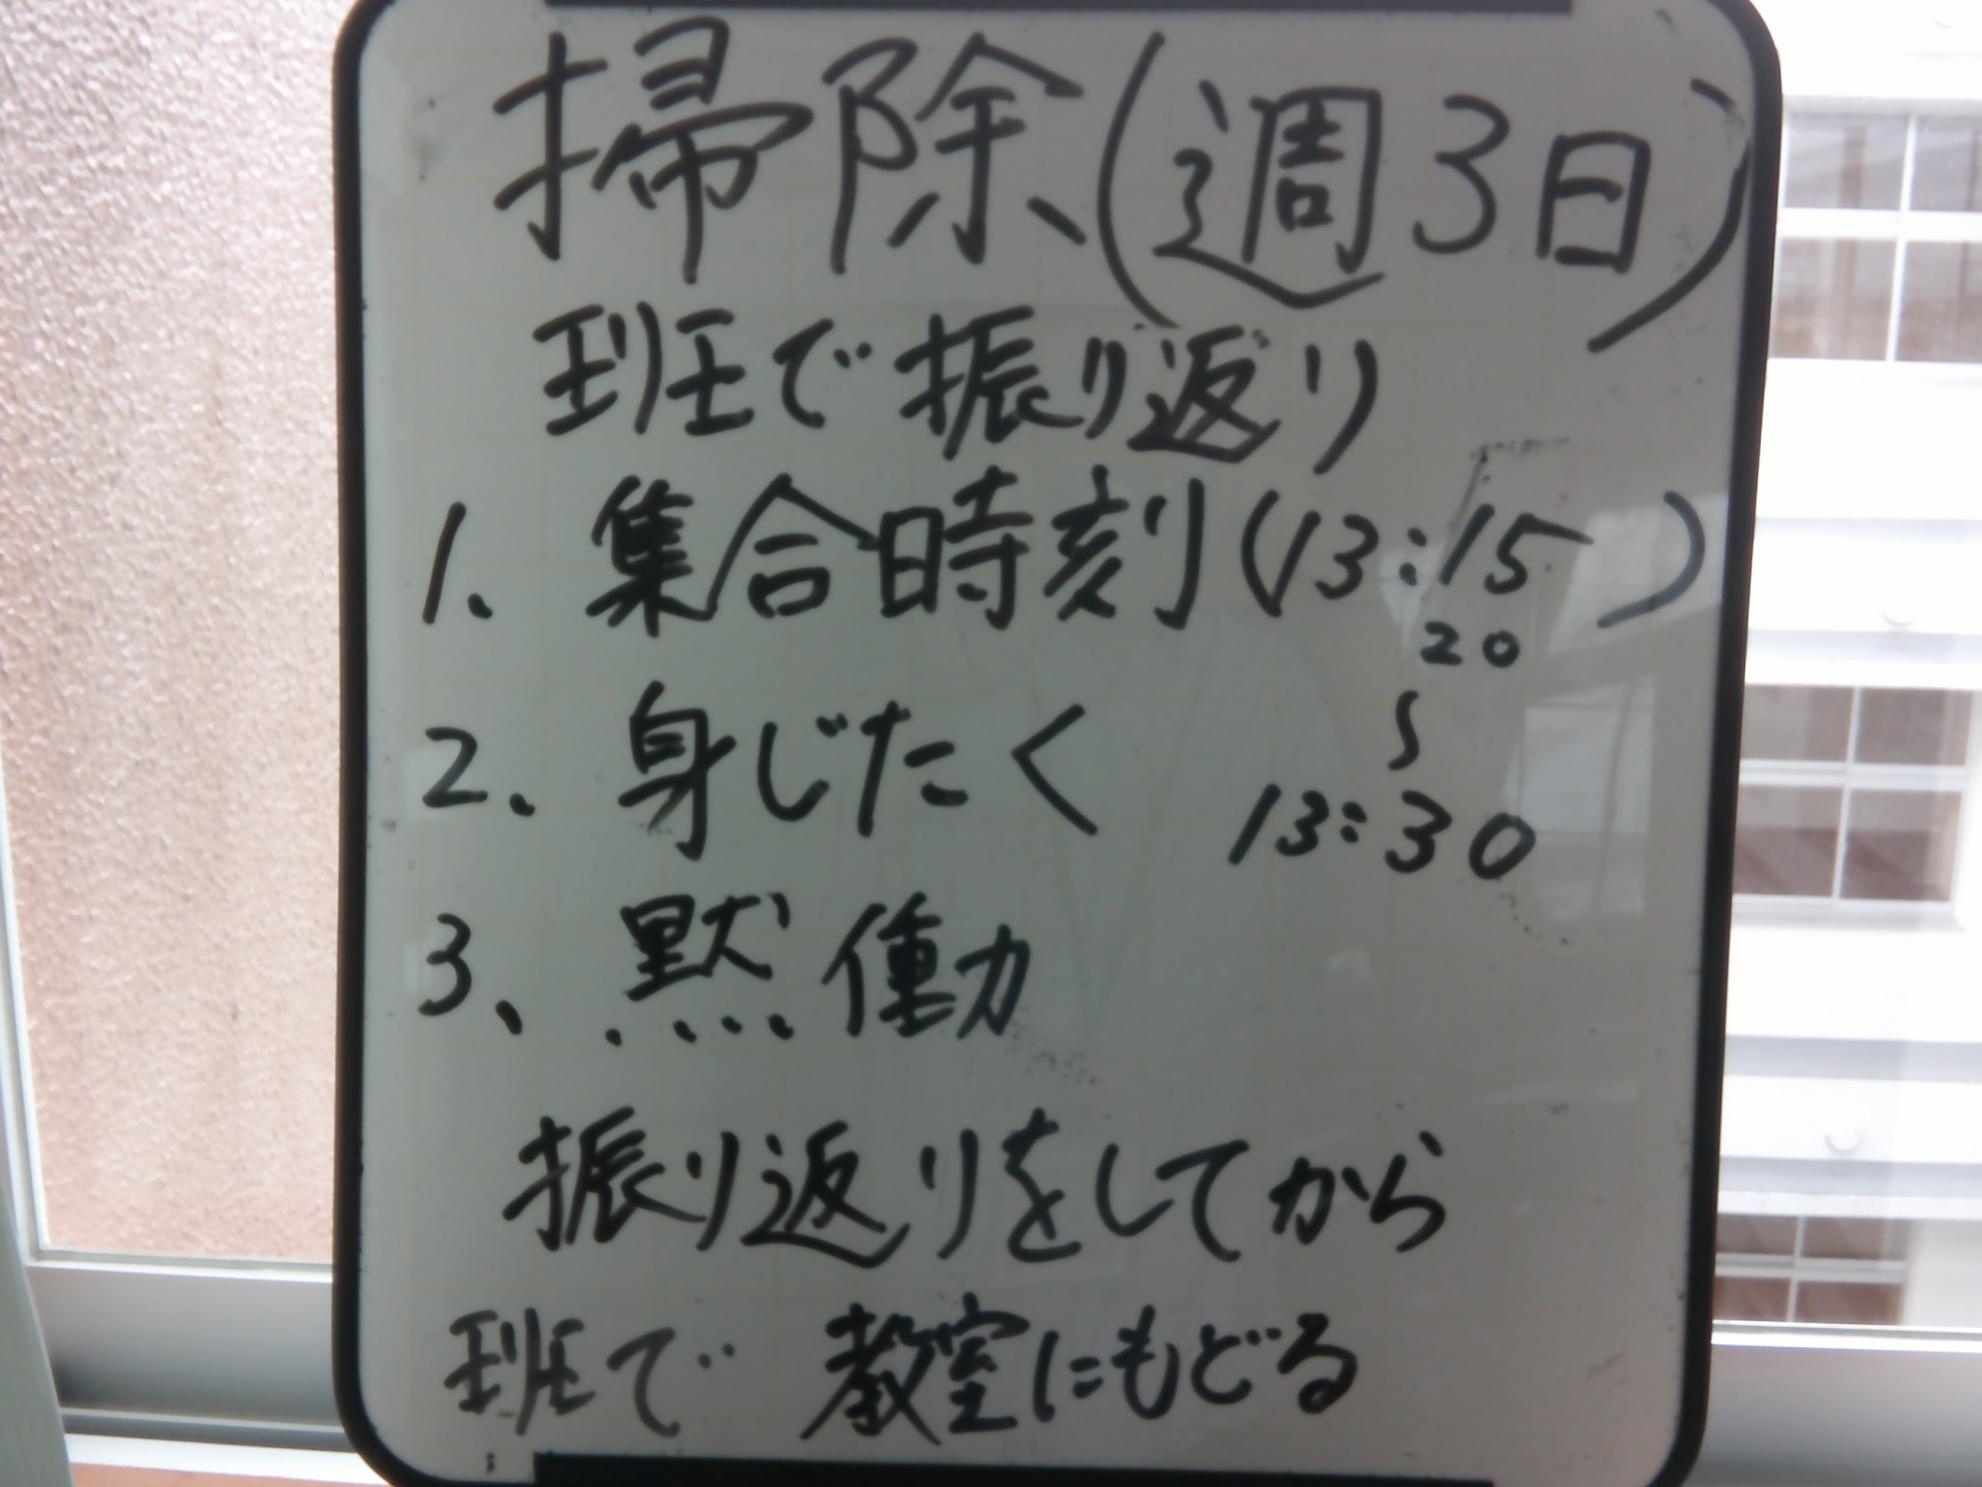 掃除(週3日)
班で振り返り
1、集合時刻(13:15)
20
2、身じたく
〜
13:30
3、黙働
振り返りをしてから
班で 教室にもどる